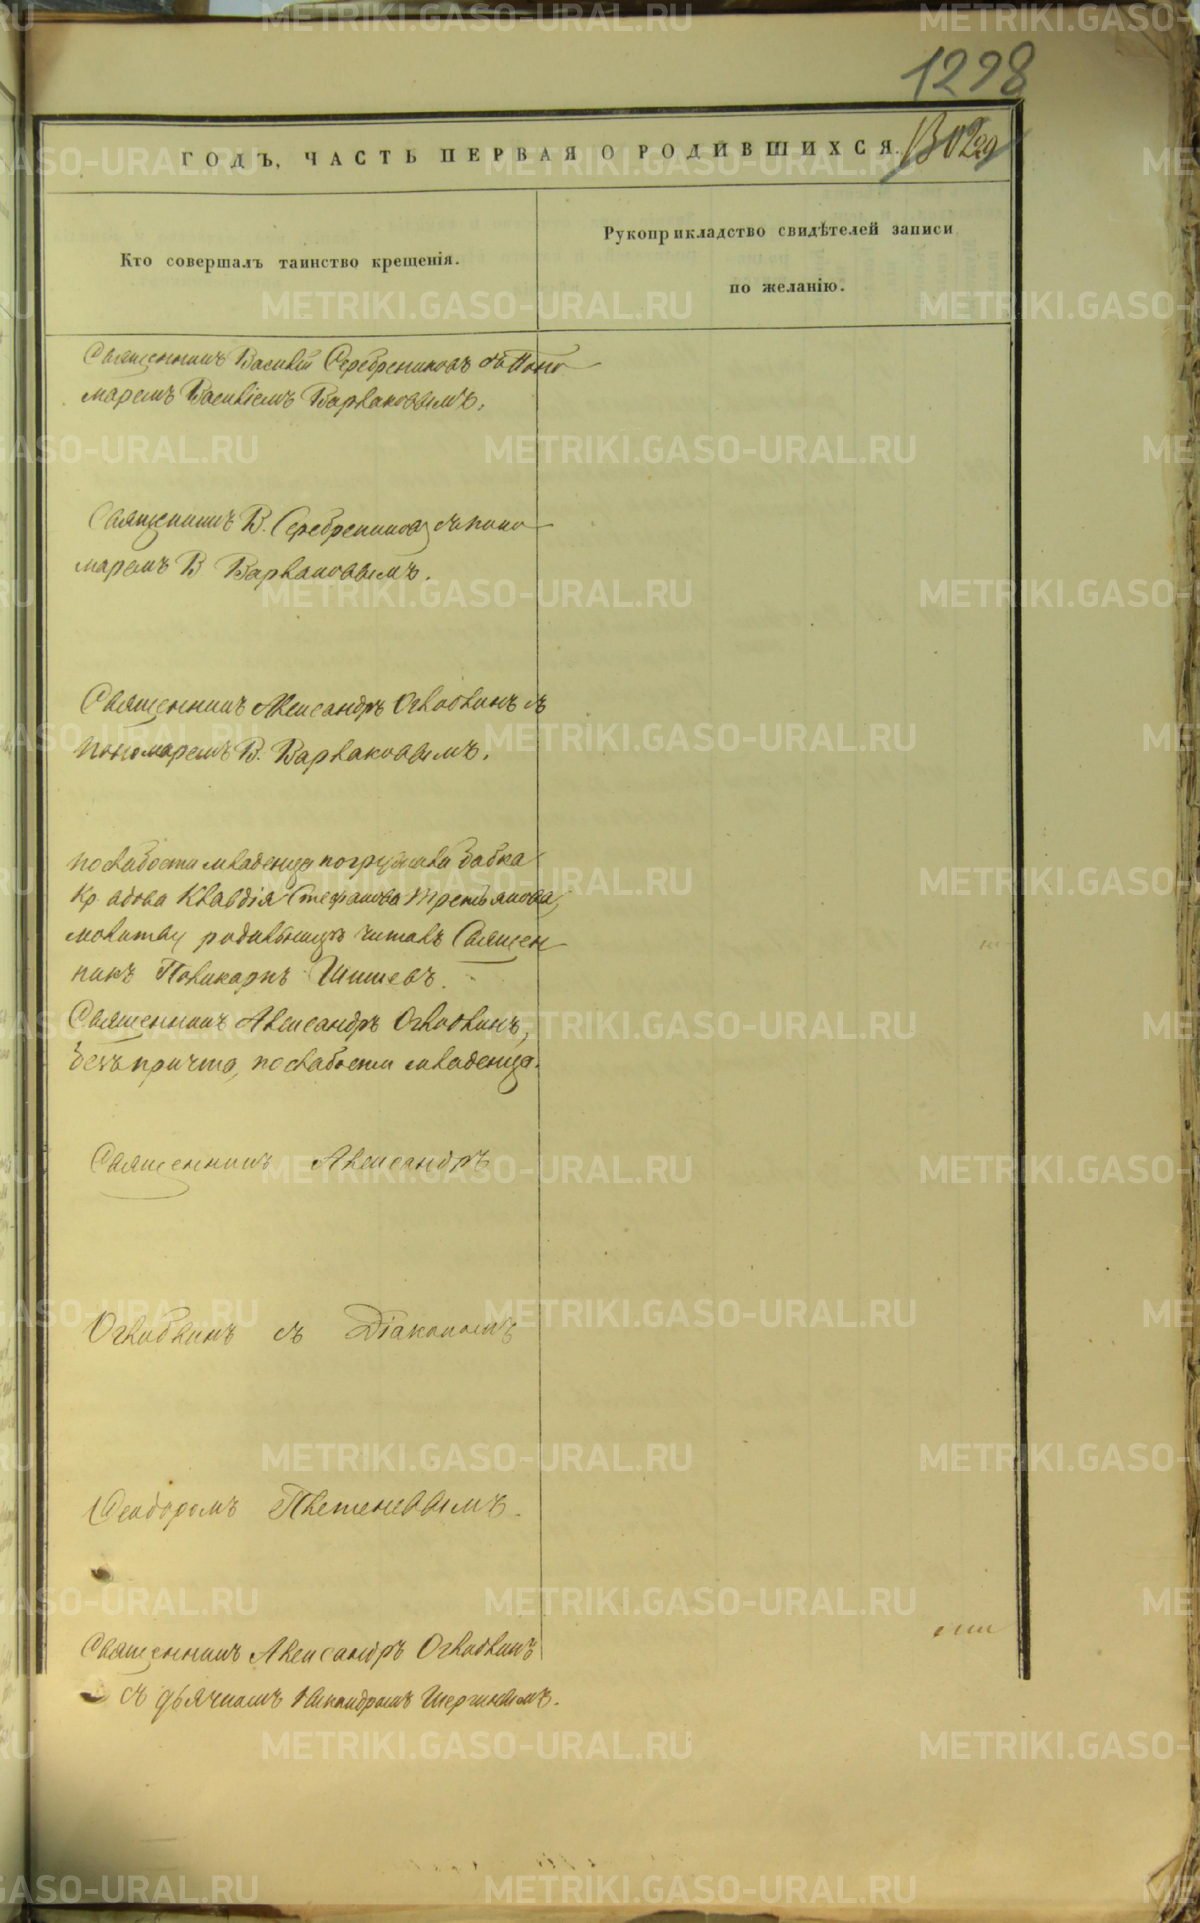 1298
ГОДЪ, ЧАСТЬ ПЕРВАЯ О РОДИВШИХСЯ.
Кто совершалъ таинство крещенія.
Рукоприкладство свидѣтелей записи
по желанію.
Священникъ Василій Серебрениковъ съ Поно
маремъ Василіемъ Варлаковымъ.
Священникъ В. Серебрениковъ съ поно
маремъ В Варлаковымъ.
Священникъ Александръ Оглоблинъ съ
пономаремъ В. Варлаковымъ.
по слабости младенца погружала бабка
Кр. вдова Клавдія Стефанова Третьякова,
молитву родильницѣ читалъ Священ
никъ Поликарпъ Шишевъ.
Священникъ Александръ Оглоблинъ,
безъ причта, по слабости младенца.
Священникъ Александръ
Оглоблинъ съ Діакономъ
Ѳеодоромъ Плетеневымъ.
Священникъ Александръ Оглоблинъ
съ дьячкомъ Никандромъ Шергинымъ.
METRIKI.GASO-URAL.RU